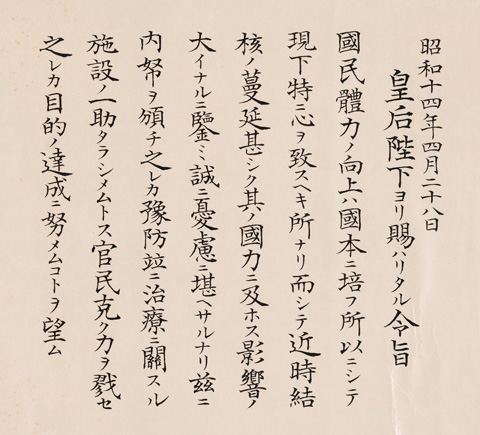 昭和十四年四月二十八日
皇后陛下ヨリ賜ハリタル令旨
國民體力ノ向上ハ國本ニ培フ所以ニシテ
現下特ニ心ヲ致スヘキ所ナリ而シテ近時結
核ノ蔓延甚シク其ノ國力ニ及ホス影響ノ
大イナルニ鑒ミ誠ニ憂慮ニ堪ヘサルナリ玆ニ
内帑ヲ頒チ之レカ豫防竝ニ治療ニ關スル
施設ノ一助タラシメムトス官民克ク力ヲ戮セ
之レカ目的ノ達成ニ努メムコトヲ望ム